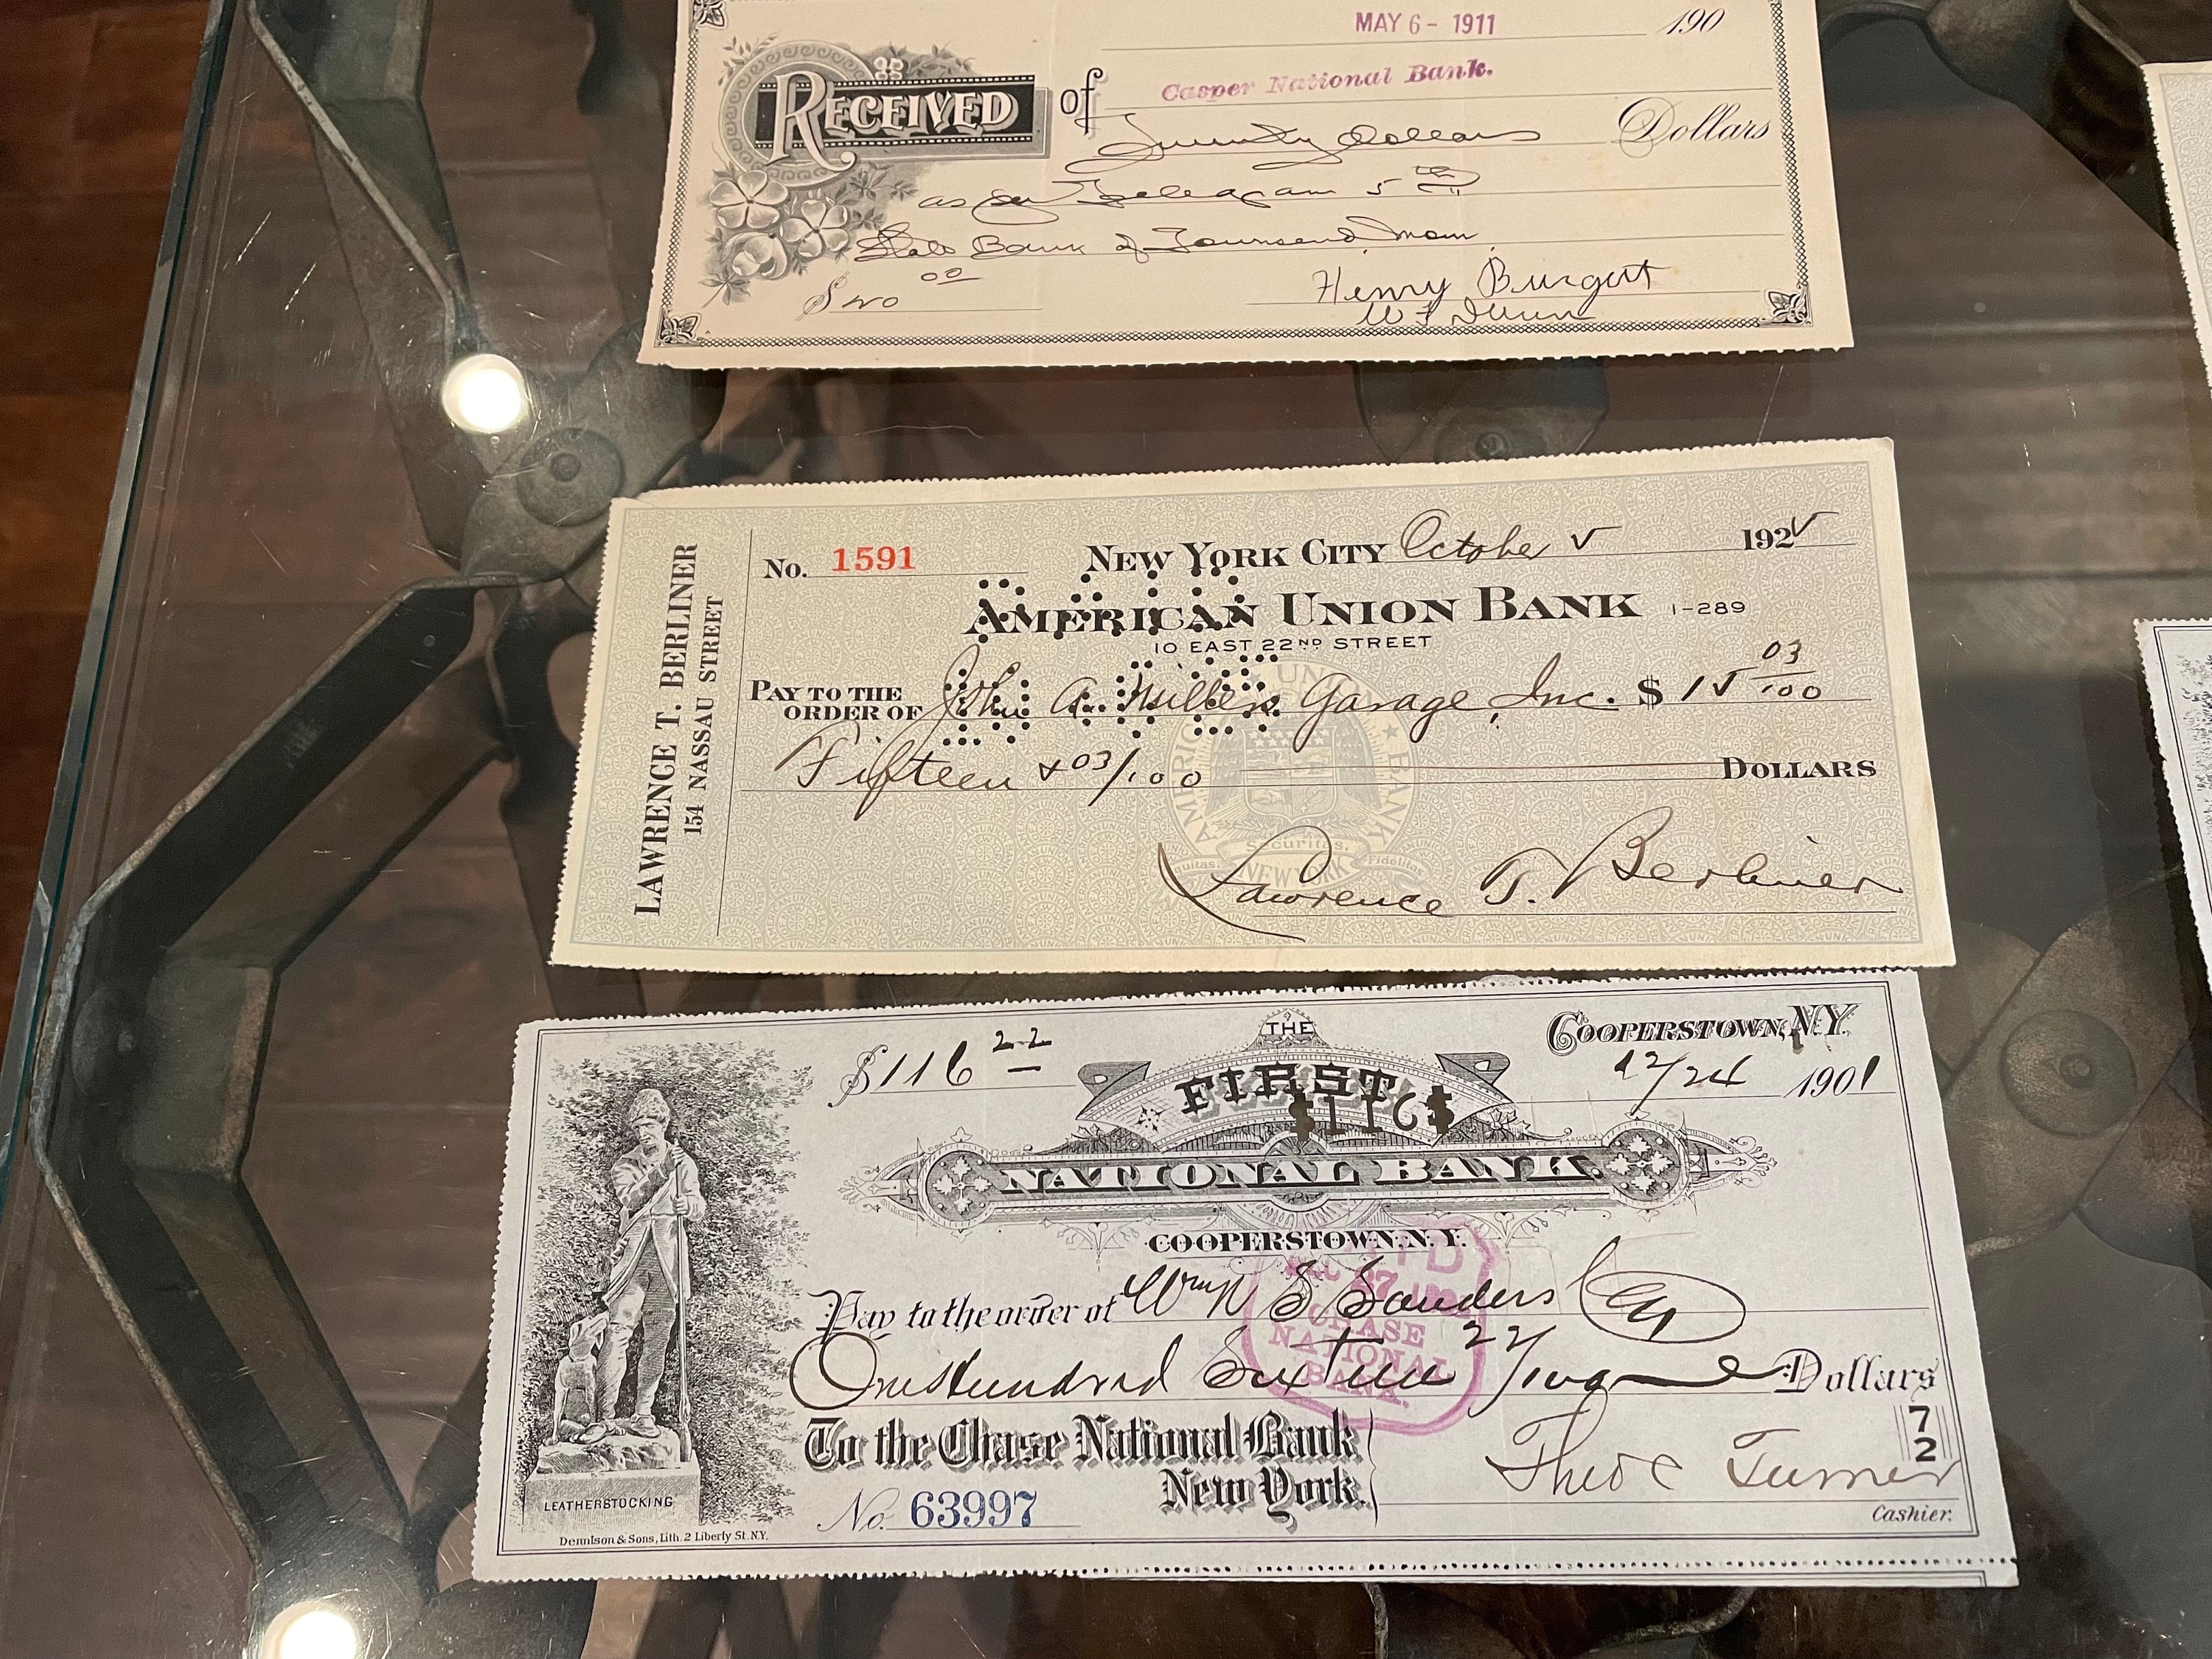 MAY 6 - 1911 190
RECEIVED of Casper National Bank.
Twenty Dollars Dollars
as per Telegram 5th
State Bank of Townsend, Mon
$20 00
Henry Burgert
W F Dunn
LAWRENCE T. BERLINER
154 NASSAU STREET
No. 1591 NEW YORK CITY October 5 1925
AMERICAN UNION BANK 1-289
10 EAST 22ND STREET
PAY TO THE ORDER OF John A. Miller's Garage, Inc. $15 03/100
Fifteen + 03/100 DOLLARS
Securitas. Fidelitas
NEW YORK
Lawrence T. Berliner
$116 22 COOPERSTOWN, N.Y.
12/24 1901
THE FIRST
$116$
NATIONAL BANK.
COOPERSTOWN, N.Y.
Pay to the order of Wm S Sanders
One Hundred Sixteen 22/100 Dollars
CHASE
NATIONAL
BANK.
To the Chase National Bank
New York.
72
Theo C Turner
Cashier.
No. 63997
LEATHERSTOCKING
Dennison & Sons, Lith. 2 Liberty St. N.Y.